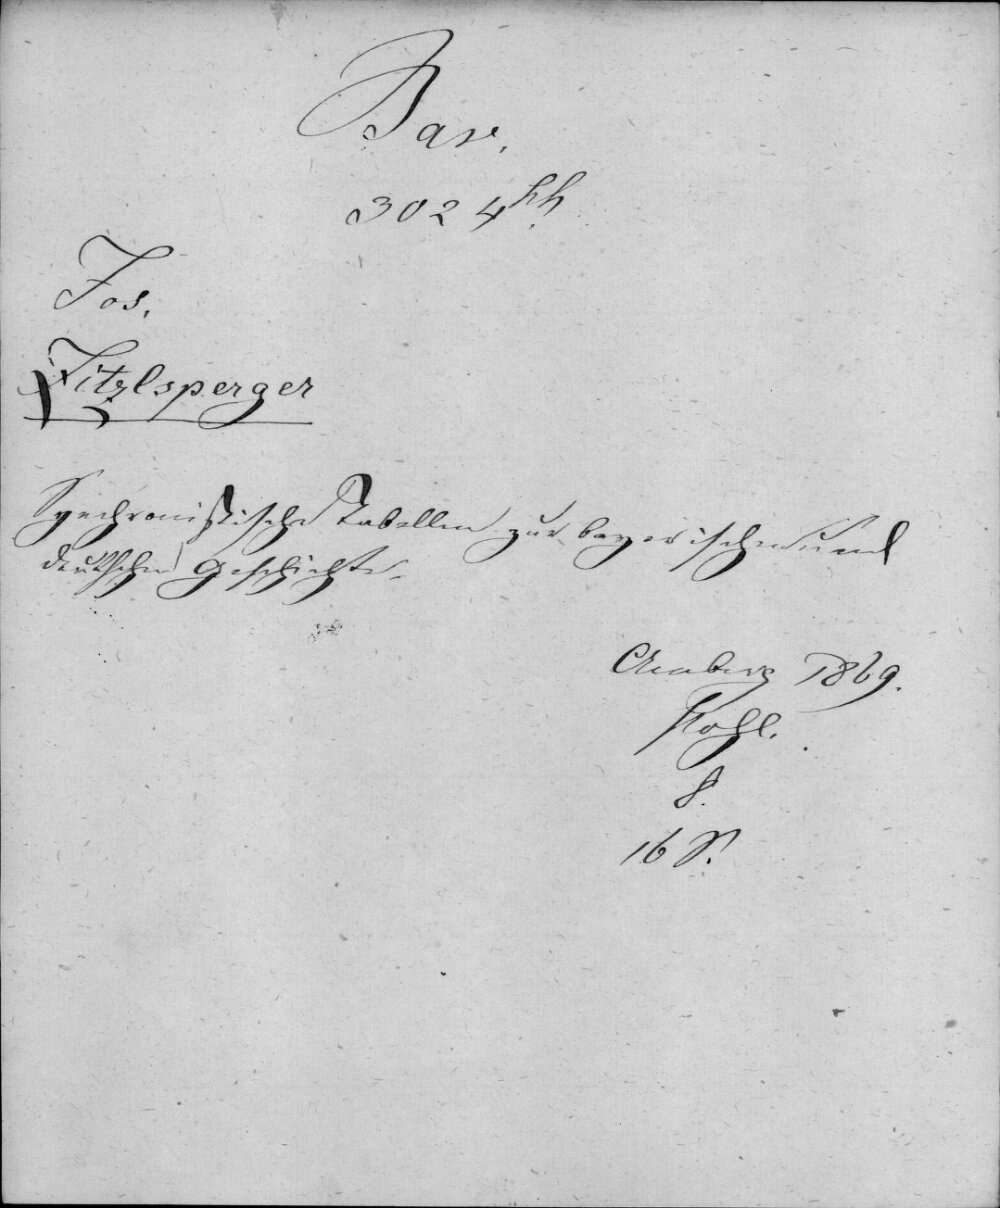 Bav.
3024 hh
Jos.
Zitzlsperger
Synchronistische Tabellen zur bayerischen und
deutschen Geschichte.
Amberg 1869.
Pohl.
8.
16 S.